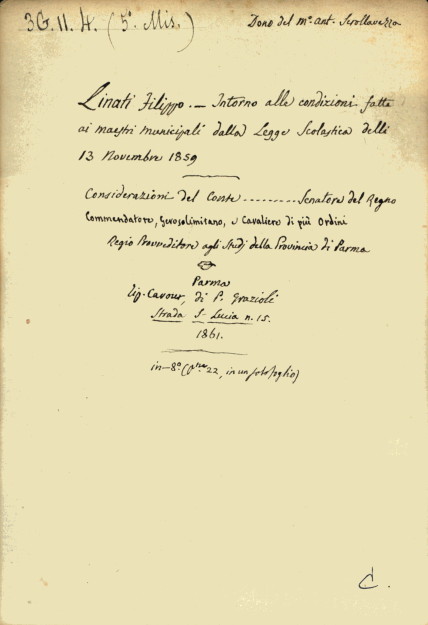 3G. II. 4. (5ª Mis.)
Dono del mº. ant. Scrollavezza
Linati Filippo. — Intorno alle condizioni fatte
ai maestri municipali dalla Legge Scolastica delli
13 Novembre 1859
Considerazioni del Conte ......... Senatore del Regno
Commendatore, Gerosolimitano, e Cavaliere di più Ordini
Regio Provveditore agli Studj della Provincia di Parma
Parma
Tip. Cavour, di P. Grazioli
Strada S. Lucia n. 15.
1861.
in-8º. (pne 22, in un solo foglio)
C.